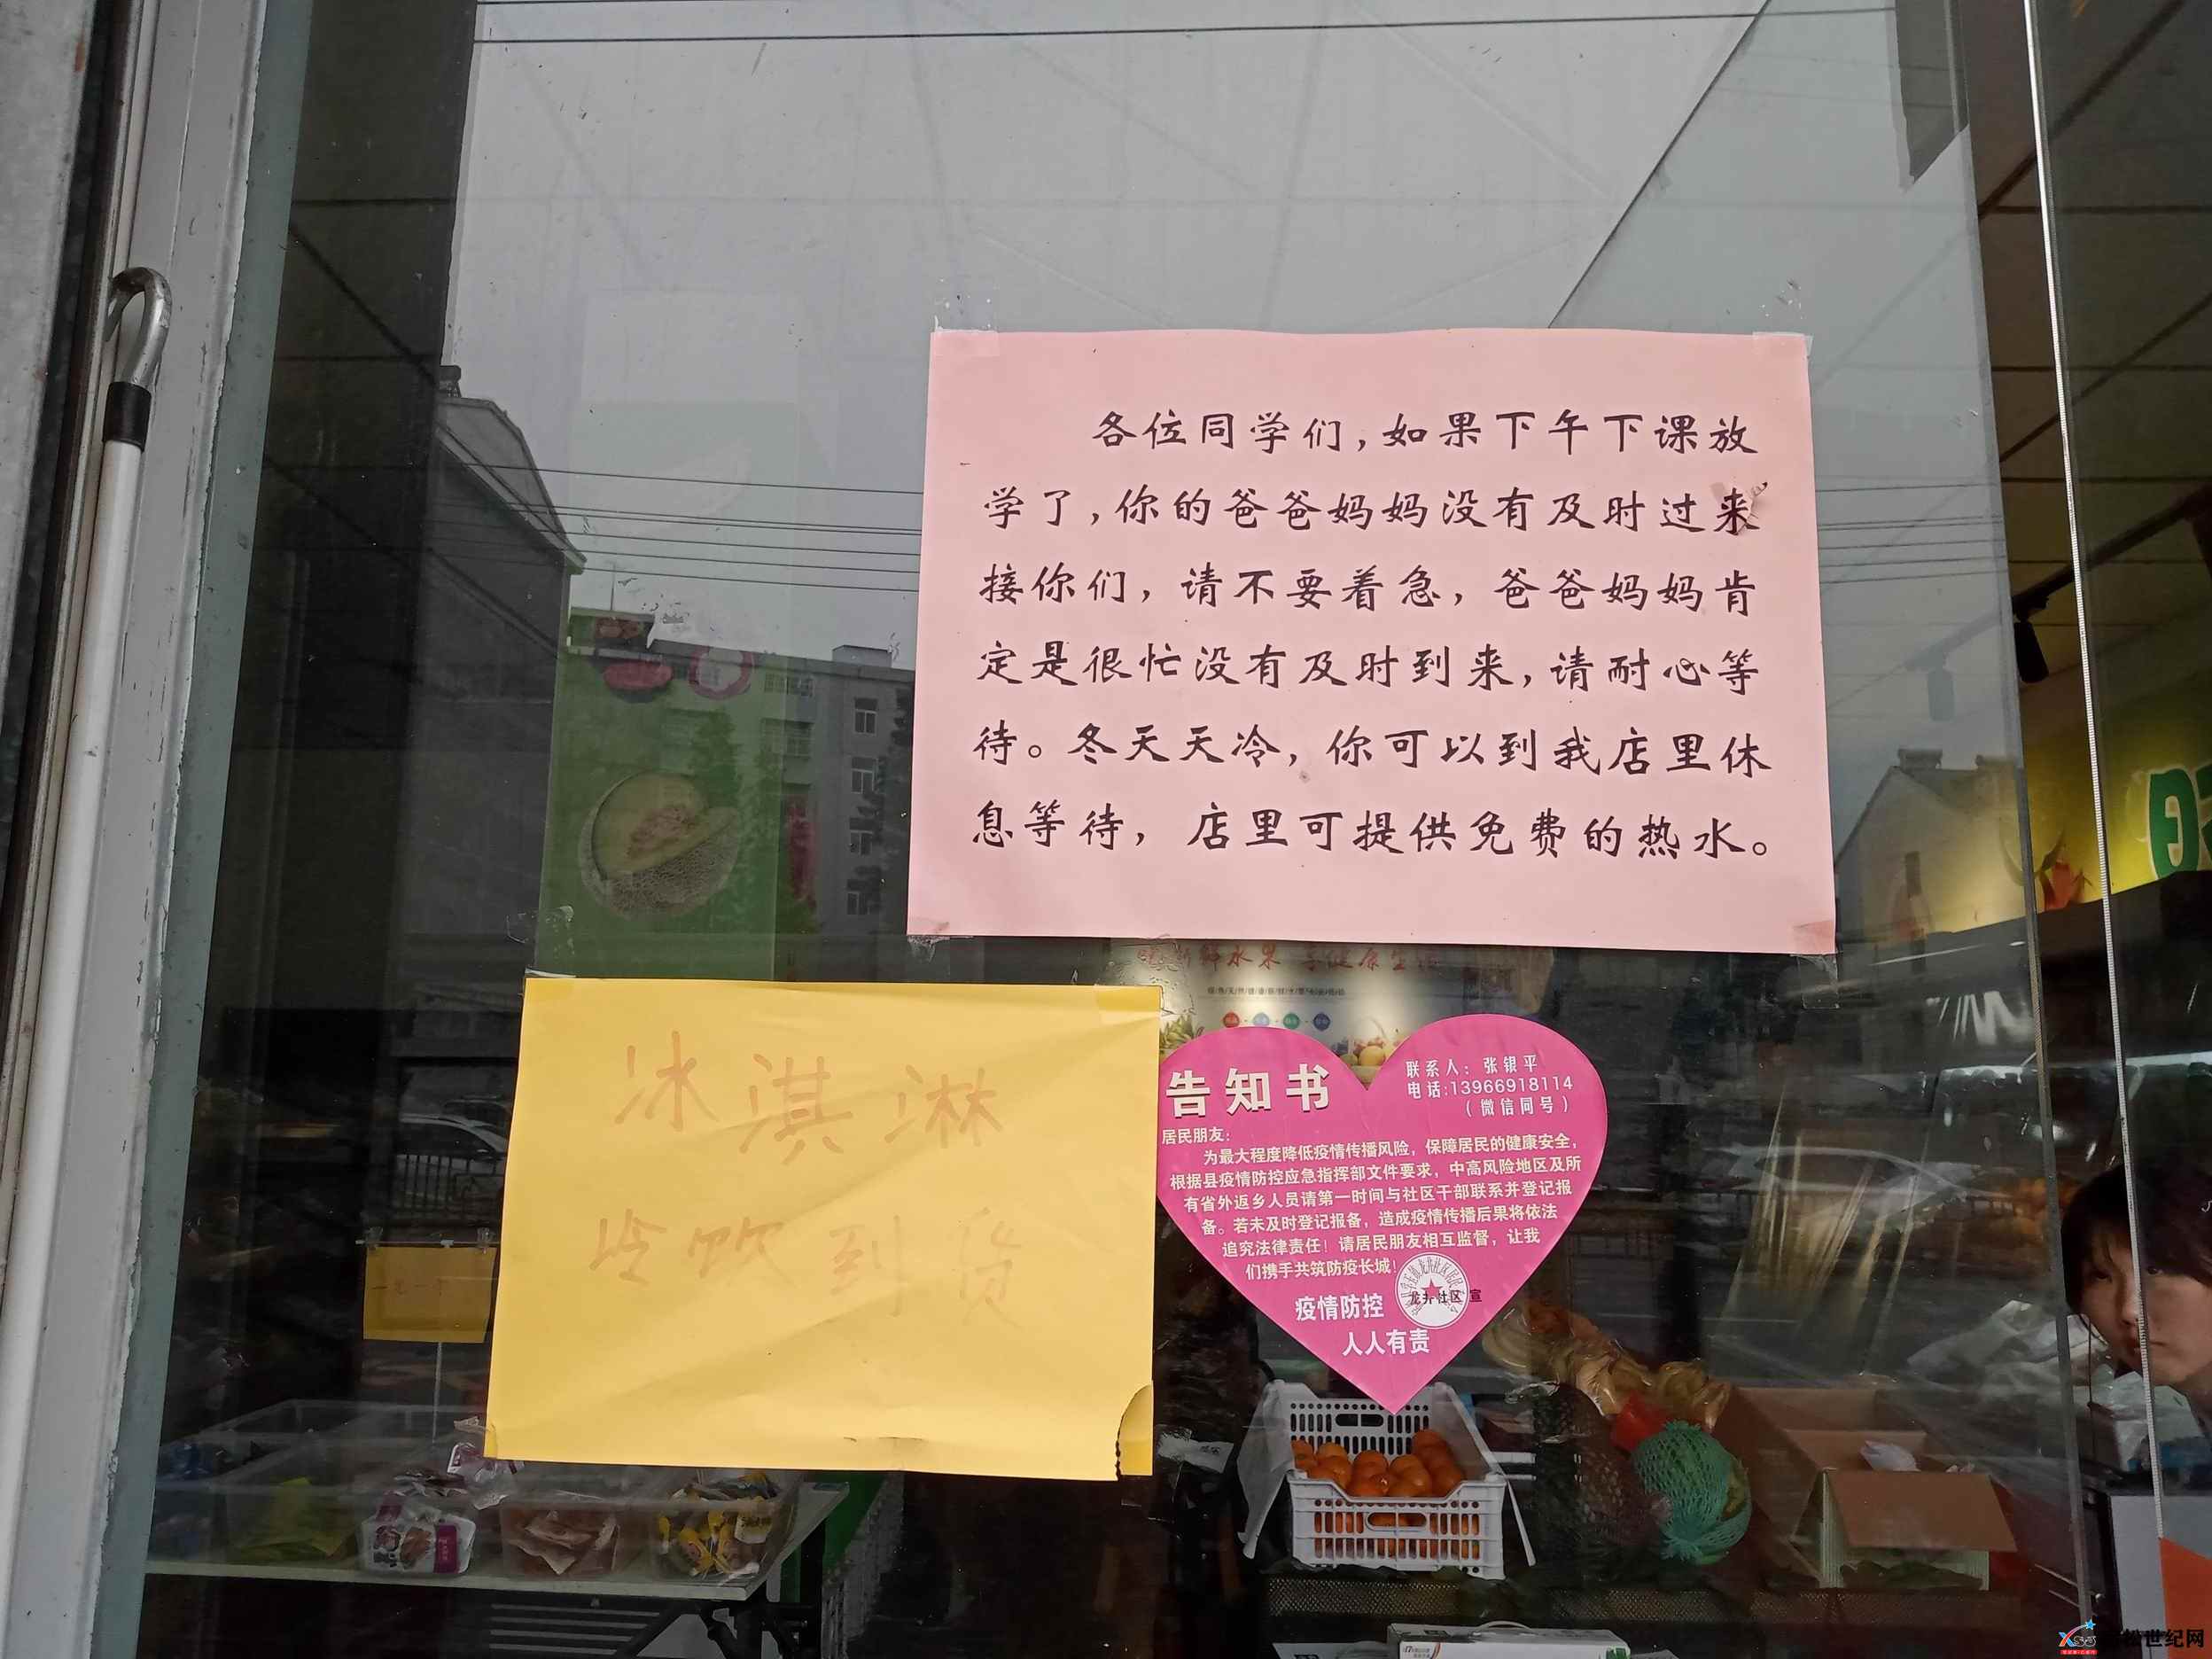 各位同学们，如果下午下课放
学了，你的爸爸妈妈没有及时过来
接你们，请不要着急，爸爸妈妈肯
定是很忙没有及时到来，请耐心等
待。冬天天冷，你可以到我店里休
息等待，店里可提供免费的热水。
新鲜水果 享健康生活
冰淇淋
冷饮到货
告知书
联系人：张银平
电话:13966918114
（微信同号）
居民朋友：
为最大程度降低疫情传播风险，保障居民的健康安全，
根据县疫情防控应急指挥部文件要求，中高风险地区及所
有省外返乡人员请第一时间与社区干部联系并登记报
备。若未及时登记报备，造成疫情传播后果将依法
追究法律责任！请居民朋友相互监督，让我
们携手共筑防疫长城！
疫情防控
龙井社区 宣
人人有责
松世纪网